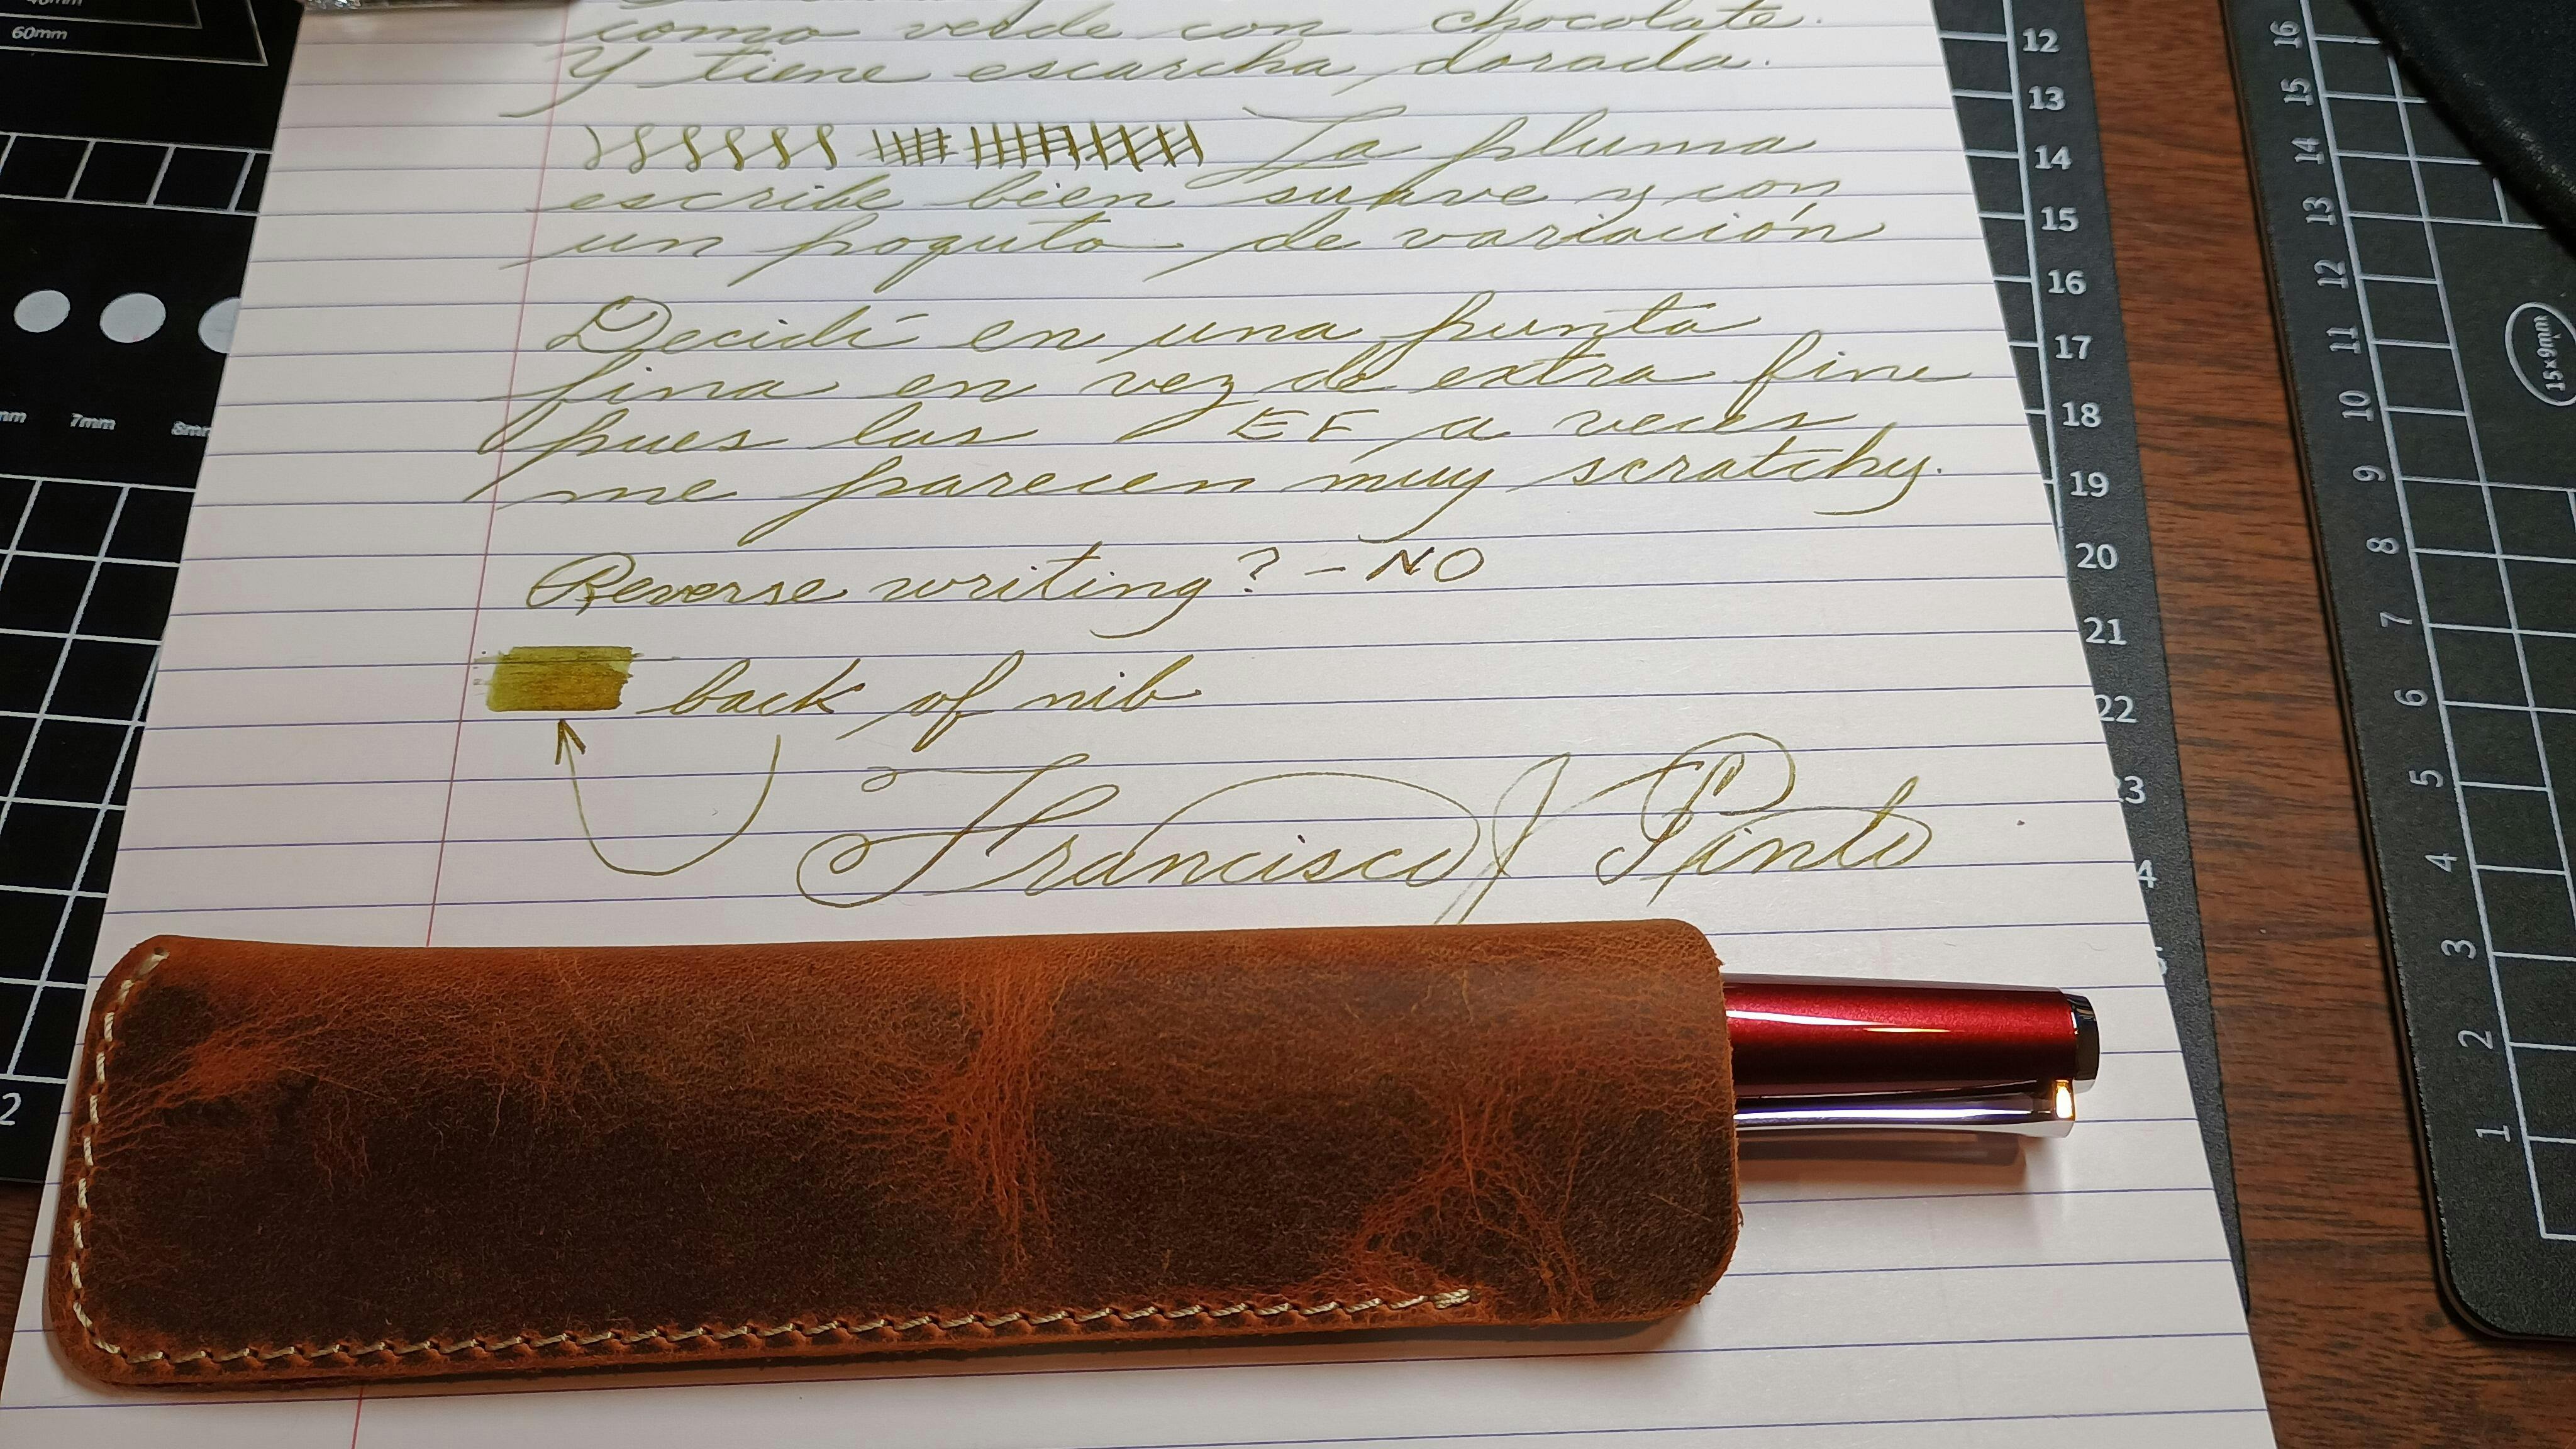 40mm
60mm
como verde con chocolate.
Y tiene escarcha dorada.
La pluma
escribe bien suave y con
un poquito de variación
Decidí en una punta
fina en vez de extra fine
pues las EF a veces
me parecen muy scratchy.
Reverse writing? - NO
back of nib
Francisco J Pinto
7mm
8mm
2
12
13
14
15
16
17
18
19
20
21
22
23
16
15
14
13
12
11
10
9
8
7
6
5
4
3
2
1
15×9mm